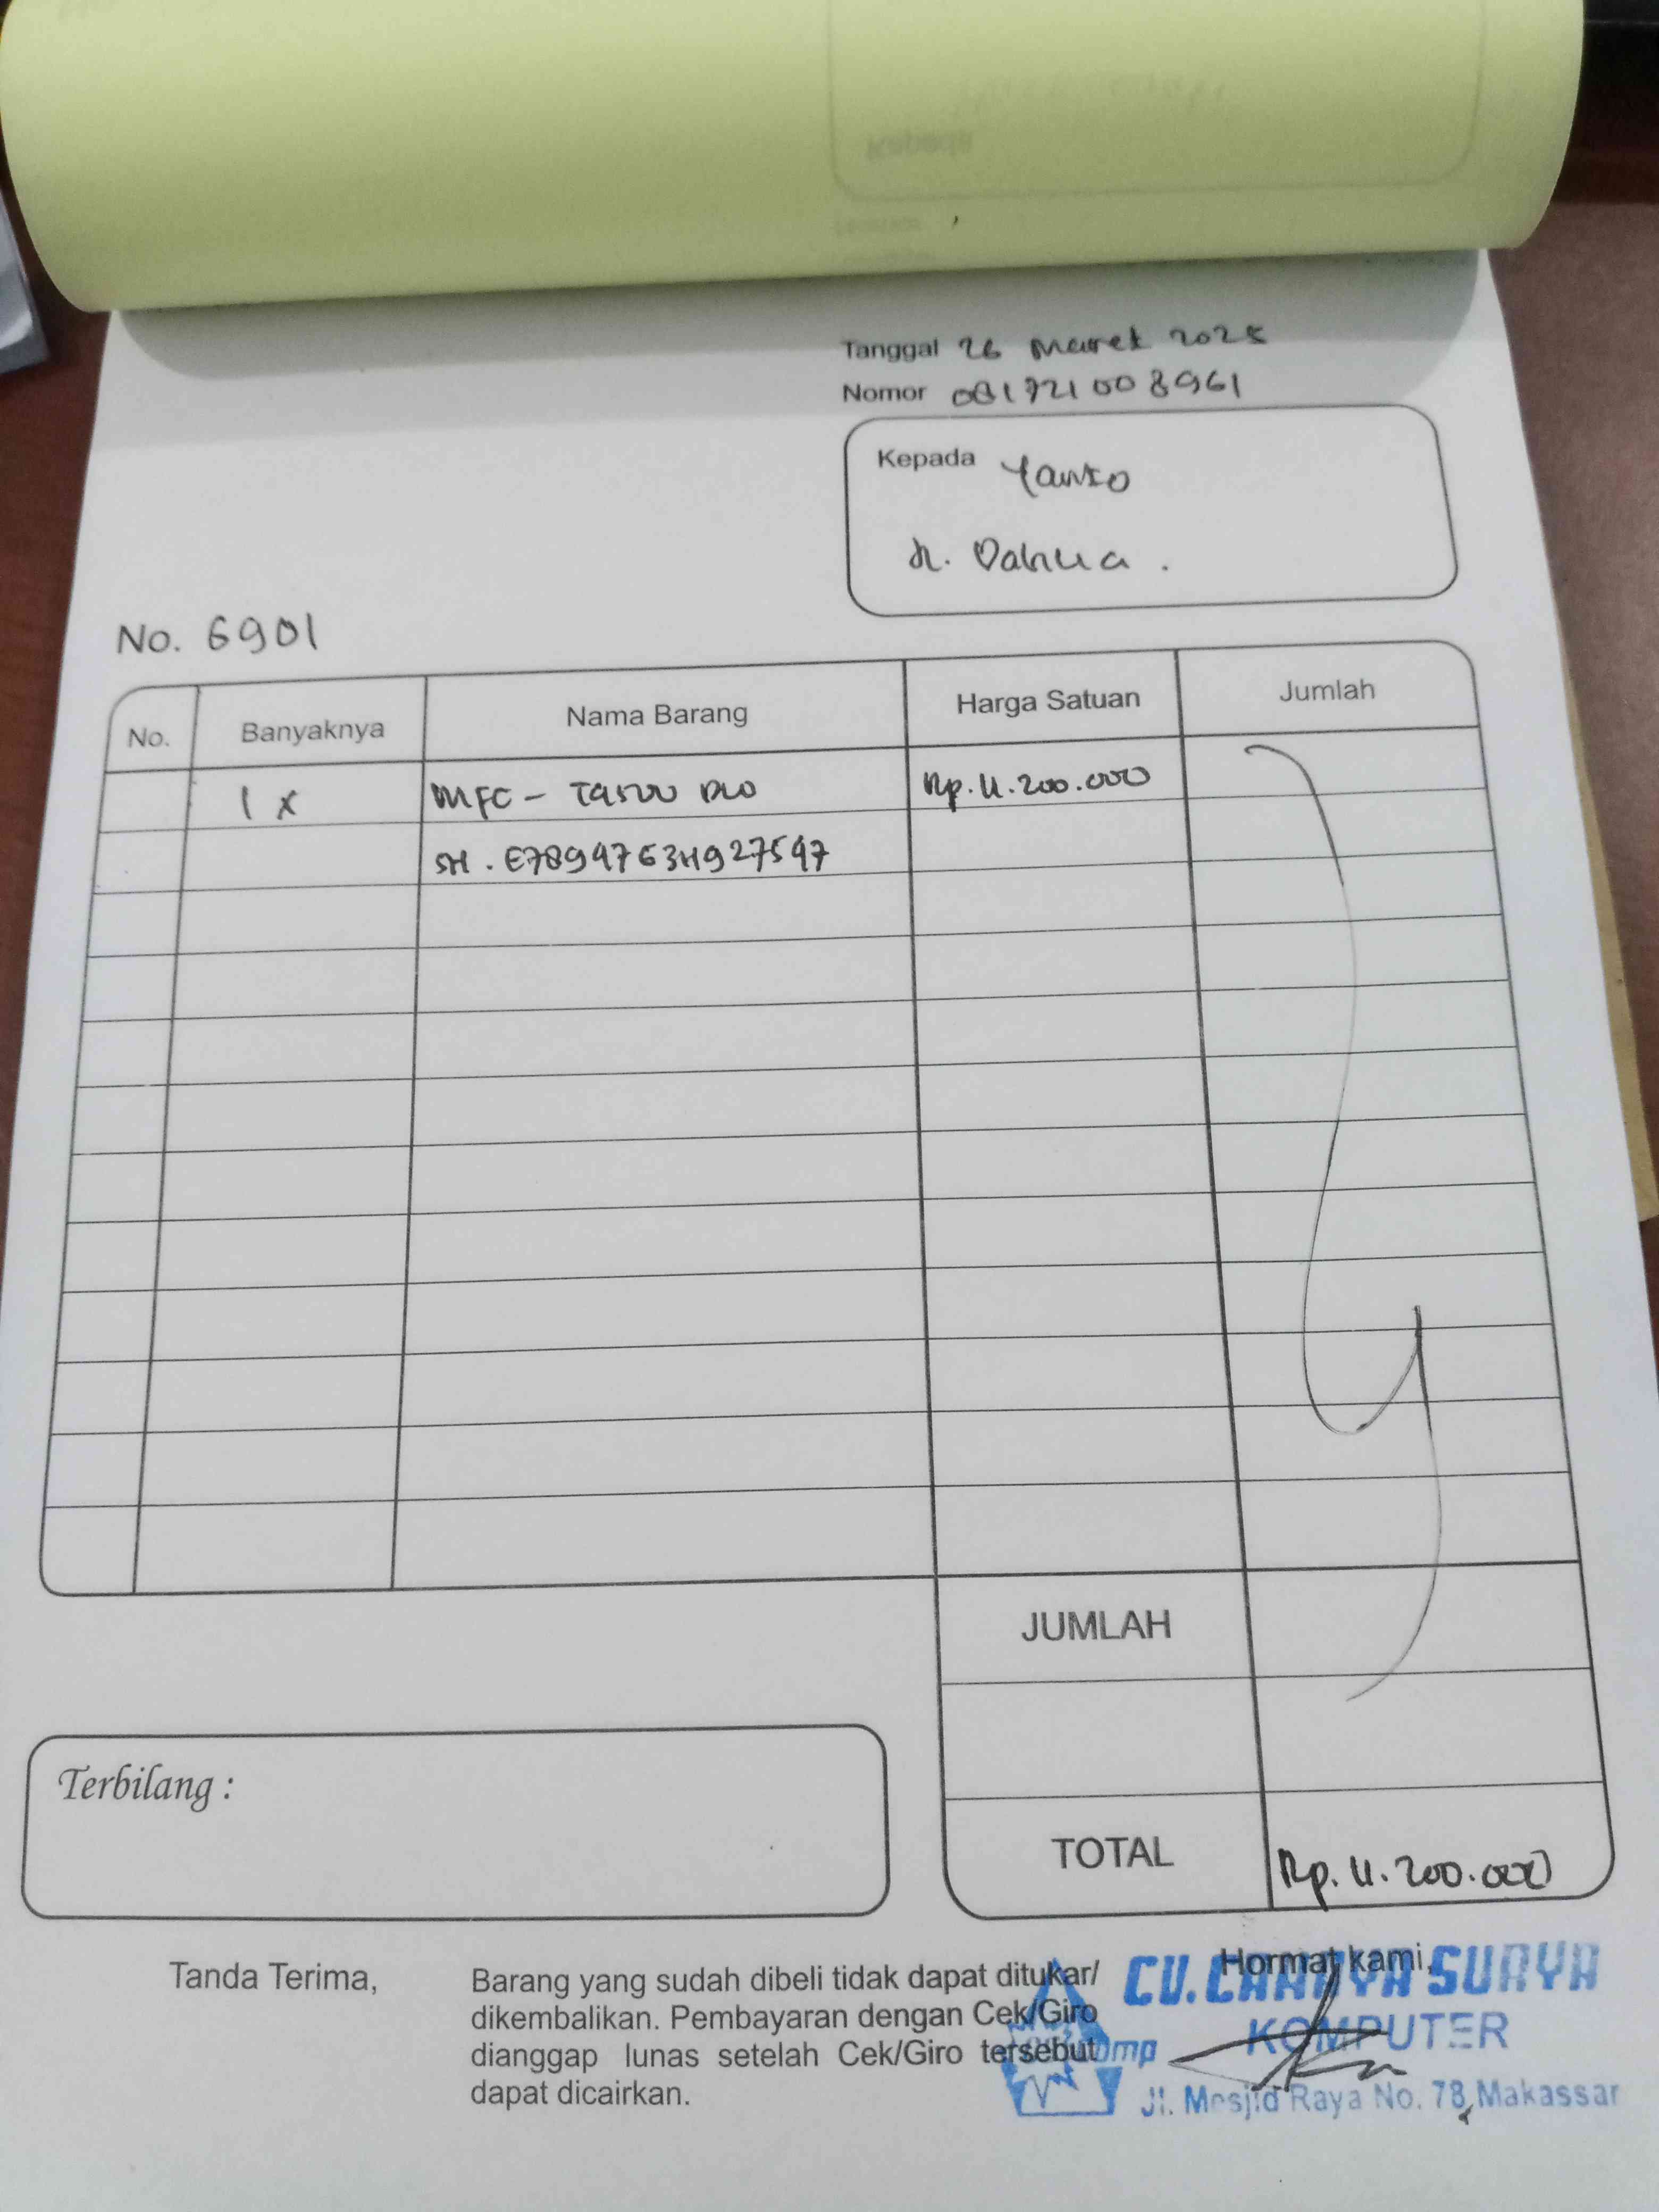 Tanggal 26 Maret 2025
Nomor 081721008961
Kepada Yanto
Jl. Dahlia.
No. 6901
No. Banyaknya Nama Barang Harga Satuan Jumlah
1 x MFC - T4500 DW Rp. 4.200.000
SN. E7894763H927547
JUMLAH
Terbilang :
TOTAL Rp. 4.200.000
Tanda Terima,
Hormat kami,
Barang yang sudah dibeli tidak dapat ditukar/
dikembalikan. Pembayaran dengan Cek/Giro
dianggap lunas setelah Cek/Giro tersebut
dapat dicairkan.
CV. CAHAYA SURYA
KOMPUTER
Jl. Mesjid Raya No. 78, Makassar